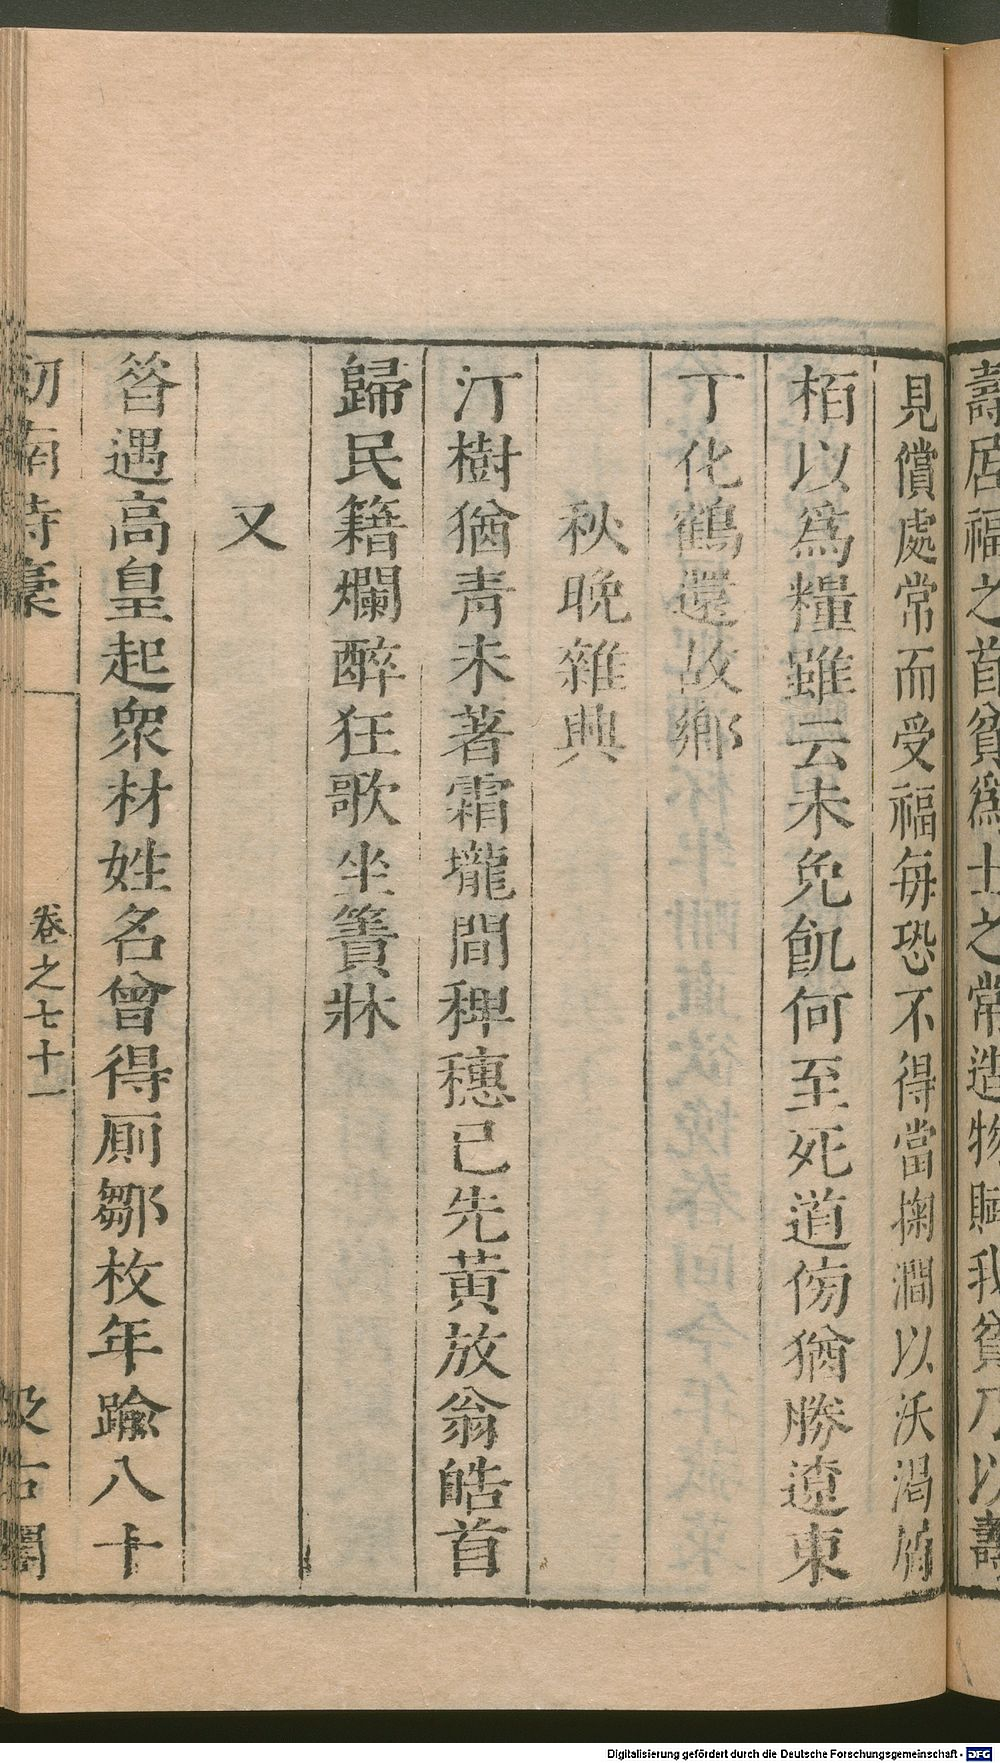 壽居福之首貧爲士之常造物賦我貧乃以壽
見償處常而受福每恐不得當掬澗以沃渴
栢以爲糧雖云未免飢何至死道傍猶勝遼東
丁化鶴還故鄉
秋晚雜興
汀樹猶青未著霜壠間稗穗已先黃放翁皓首
歸民籍爛醉狂歌坐簀牀
又
昝遇高皇起衆材姓名曾得厠鄒枚年踰八十
劒南詩稾
卷之七十一
汲古閣
Digitalisierung gefördert durch die Deutsche Forschungsgemeinschaft - DFG